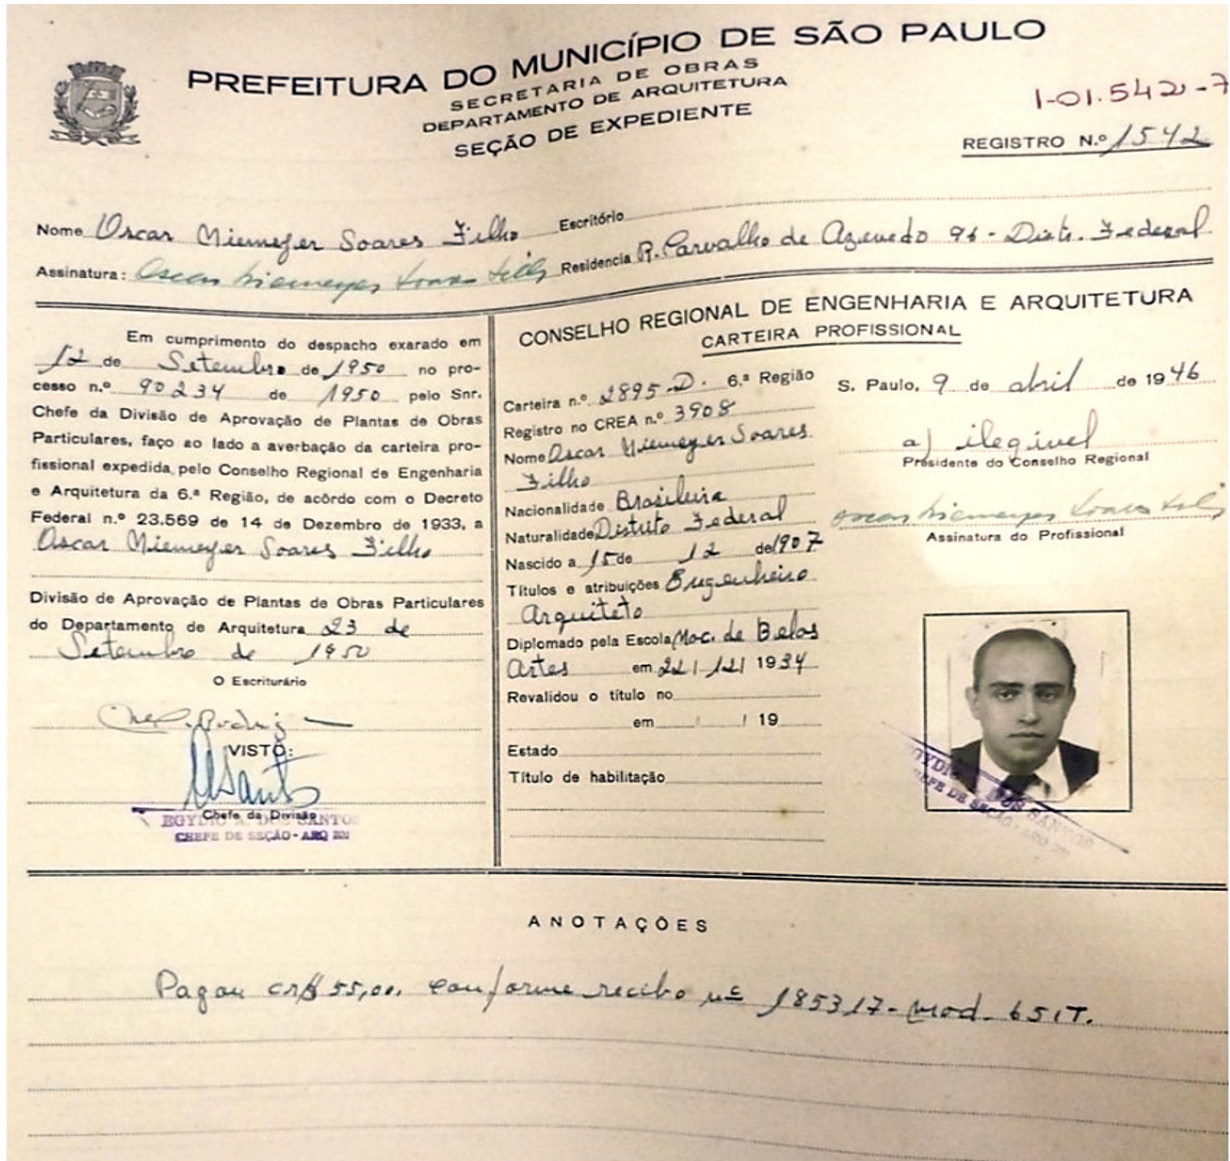 PREFEITURA DO MUNICÍPIO DE SÃO PAULO
SECRETARIA DE OBRAS
DEPARTAMENTO DE ARQUITETURA
SEÇÃO DE EXPEDIENTE
1-01.542-7
REGISTRO N.º 1542
Nome Oscar Niemeyer Soares Filho Escritório
Assinatura: Oscar Niemeyer Soares Filho Residencia R. Carvalho de Azevedo 96 - Distr. Federal
Em cumprimento do despacho exarado em
12 de Setembro de 1950 no pro-
cesso n.º 90234 de 1950 pelo Snr.
Chefe da Divisão de Aprovação de Plantas de Obras
Particulares, faço ao lado a averbação da carteira pro-
fissional expedida pelo Conselho Regional de Engenharia
e Arquitetura da 6.ª Região, de acôrdo com o Decreto
Federal n.º 23.569 de 14 de Dezembro de 1933, a
Oscar Niemeyer Soares Filho
Divisão de Aprovação de Plantas de Obras Particulares
do Departamento de Arquitetura 23 de
Setembro de 1950
O Escriturário
VISTO:
Chefe da Divisão
EGYDIO A. DOS SANTOS
CHEFE DE SEÇÃO - ARQ
CONSELHO REGIONAL DE ENGENHARIA E ARQUITETURA
CARTEIRA PROFISSIONAL
Carteira n.º 2895-D. 6.ª Região
Registro no CREA n.º 3908
Nome Oscar Niemeyer Soares
Filho
Nacionalidade Brasileira
Naturalidade Distrito Federal
Nascido a 15 de 12 de 1907
Títulos e atribuições Engenheiro
Arquiteto
Diplomado pela Escola Nac. de Belas
Artes em 22/12/1934
Revalidou o título no
em / / 19
Estado
Título de habilitação
S. Paulo, 9 de abril de 1946
a) ilegivel
Presidente do Conselho Regional
Oscar Niemeyer Soares Filho
Assinatura do Profissional
EGYDIO A. DOS SANTOS
CHEFE DE SEÇÃO - ARQ
ANOTAÇÕES
Pagou cr$ 55,00. conforme recibo nº 185317 - mod. 651T.